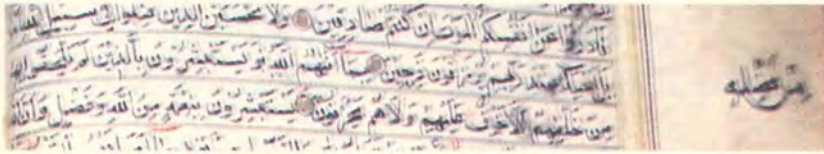 فادرؤا عن انفسكم الموت ان كنتم صادقين ولا تحسبن الذين قتلوا في سبيل الله
عند ربهم يرزقون فرحين بما اتيهم الله و يستبشرون بالذين لم يلحقوا بهم
من خلفهم الا خوف عليهم ولا هم يحزنون يستبشرون بنعمة من الله وفضل وان الله
من فضله